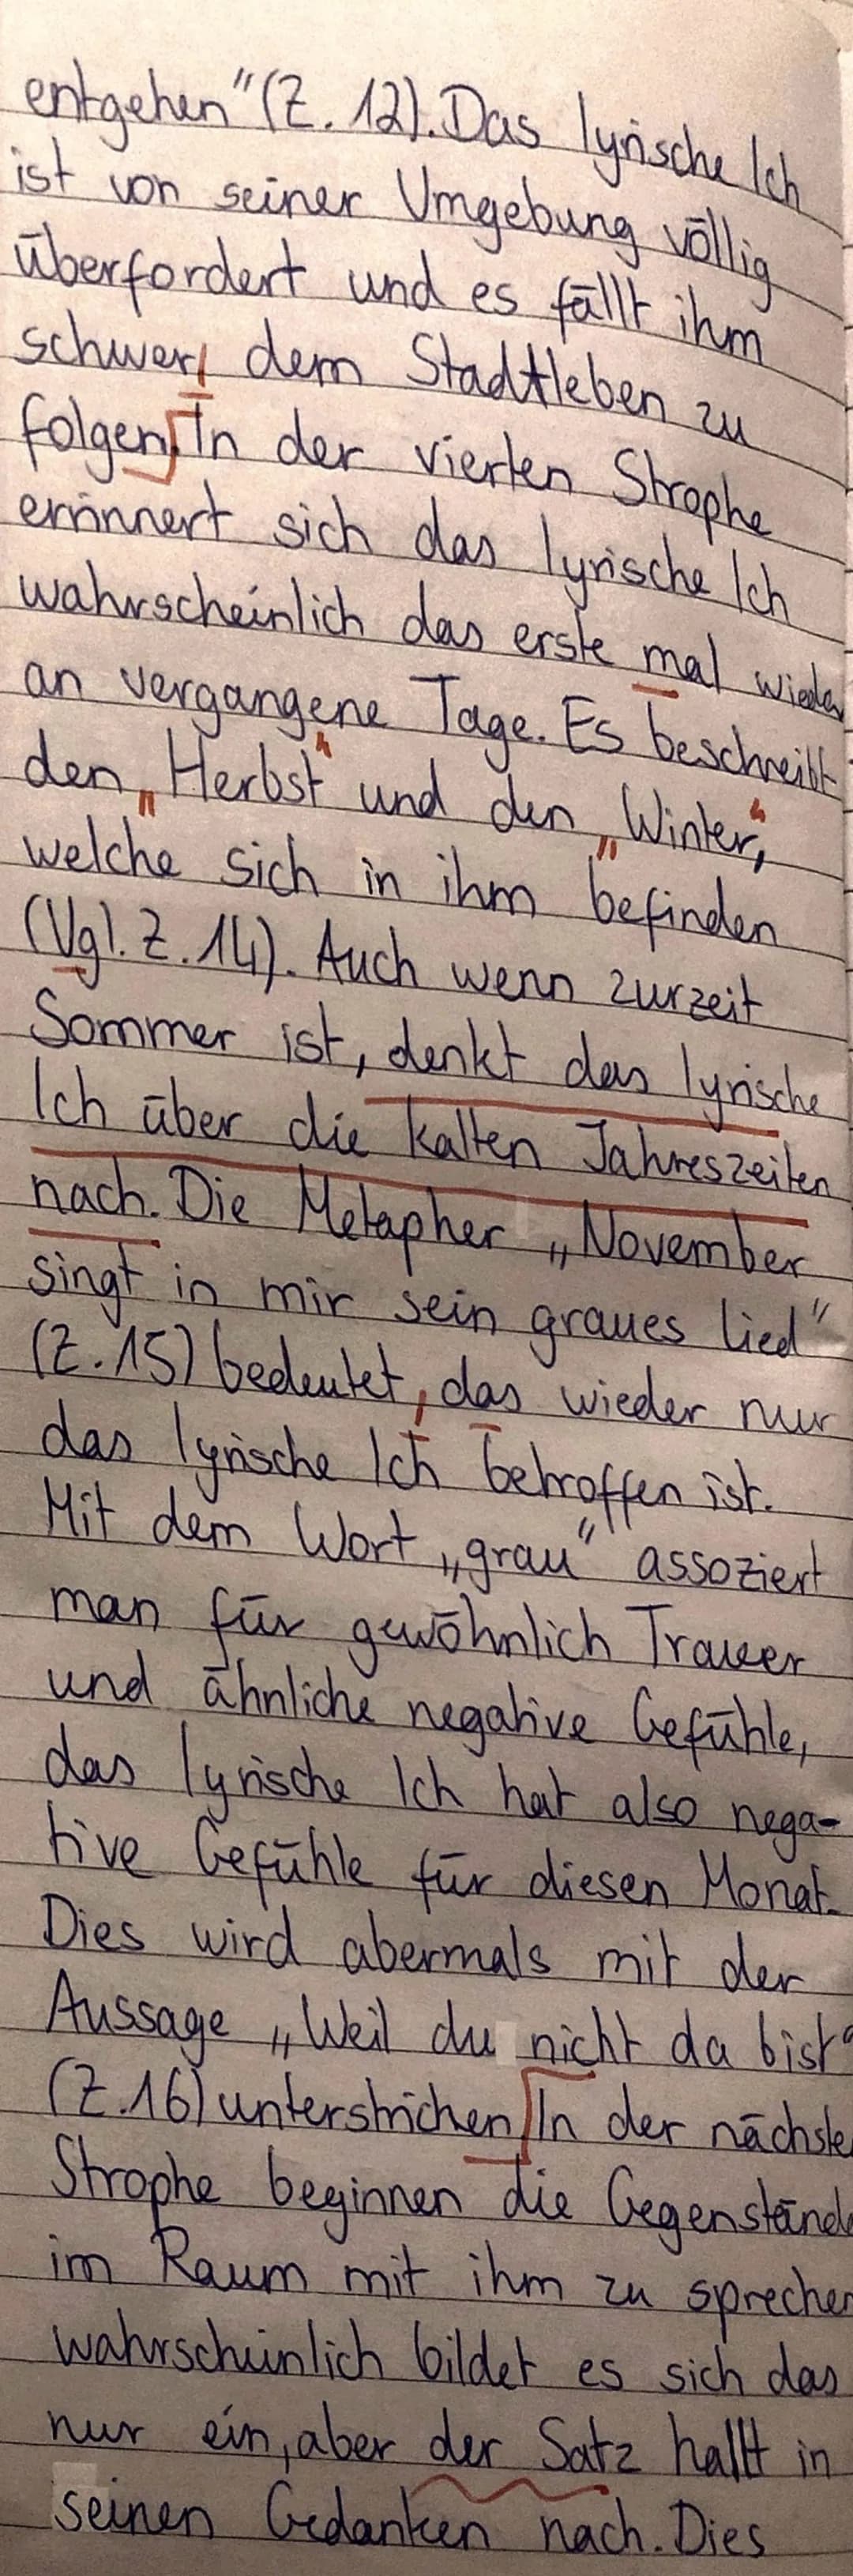 entgehen" (Z. 12). Das lyrische Ich
ist von seiner Umgebung völlig
überfordert und es fällt ihm
schwer, dem Stadtleben zu
folgen. In der vierten Strophe
erinnert sich das lyrische Ich
wahrscheinlich das erste mal wieder
an vergangene Tage. Es beschreibt
den „Herbst" und den „Winter",
welche sich in ihm befinden
(Vgl. Z. 14). Auch wenn zurzeit
Sommer ist, denkt das lyrische
Ich über die kalten Jahreszeiten
nach. Die Metapher „November
singt in mir sein graues Lied"
(Z. 15) bedeutet, das wieder nur
das lyrische Ich betroffen ist.
Mit dem Wort „grau" assoziert
man für gewöhnlich Trauer
und ähnliche negative Gefühle,
das lyrische Ich hat also nega-
tive Gefühle für diesen Monat.
Dies wird abermals mit der
Aussage „Weil du nicht da bist"
(Z. 16) unterstrichen. In der nächste
Strophe beginnen die Gegenstände
im Raum mit ihm zu sprechen
wahrscheinlich bildet es sich das
nur ein, aber der Satz hallt in
seinen Gedanken nach. Dies